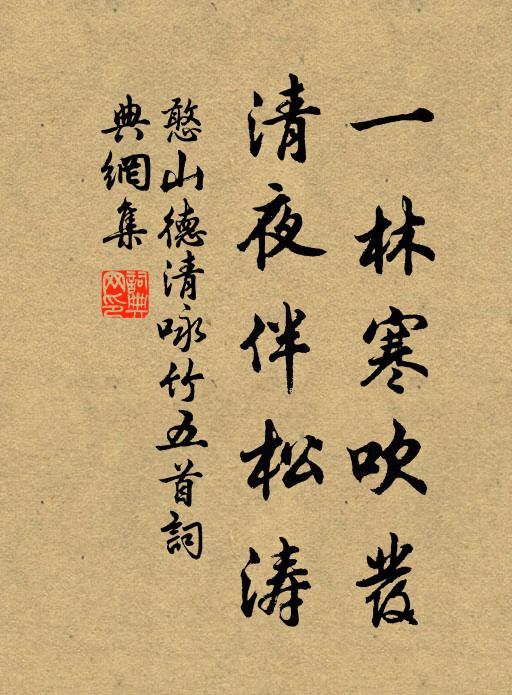 一林寒吹發
清夜伴松涛
憨山德清咏竹五首詞
典網集
詞典网印